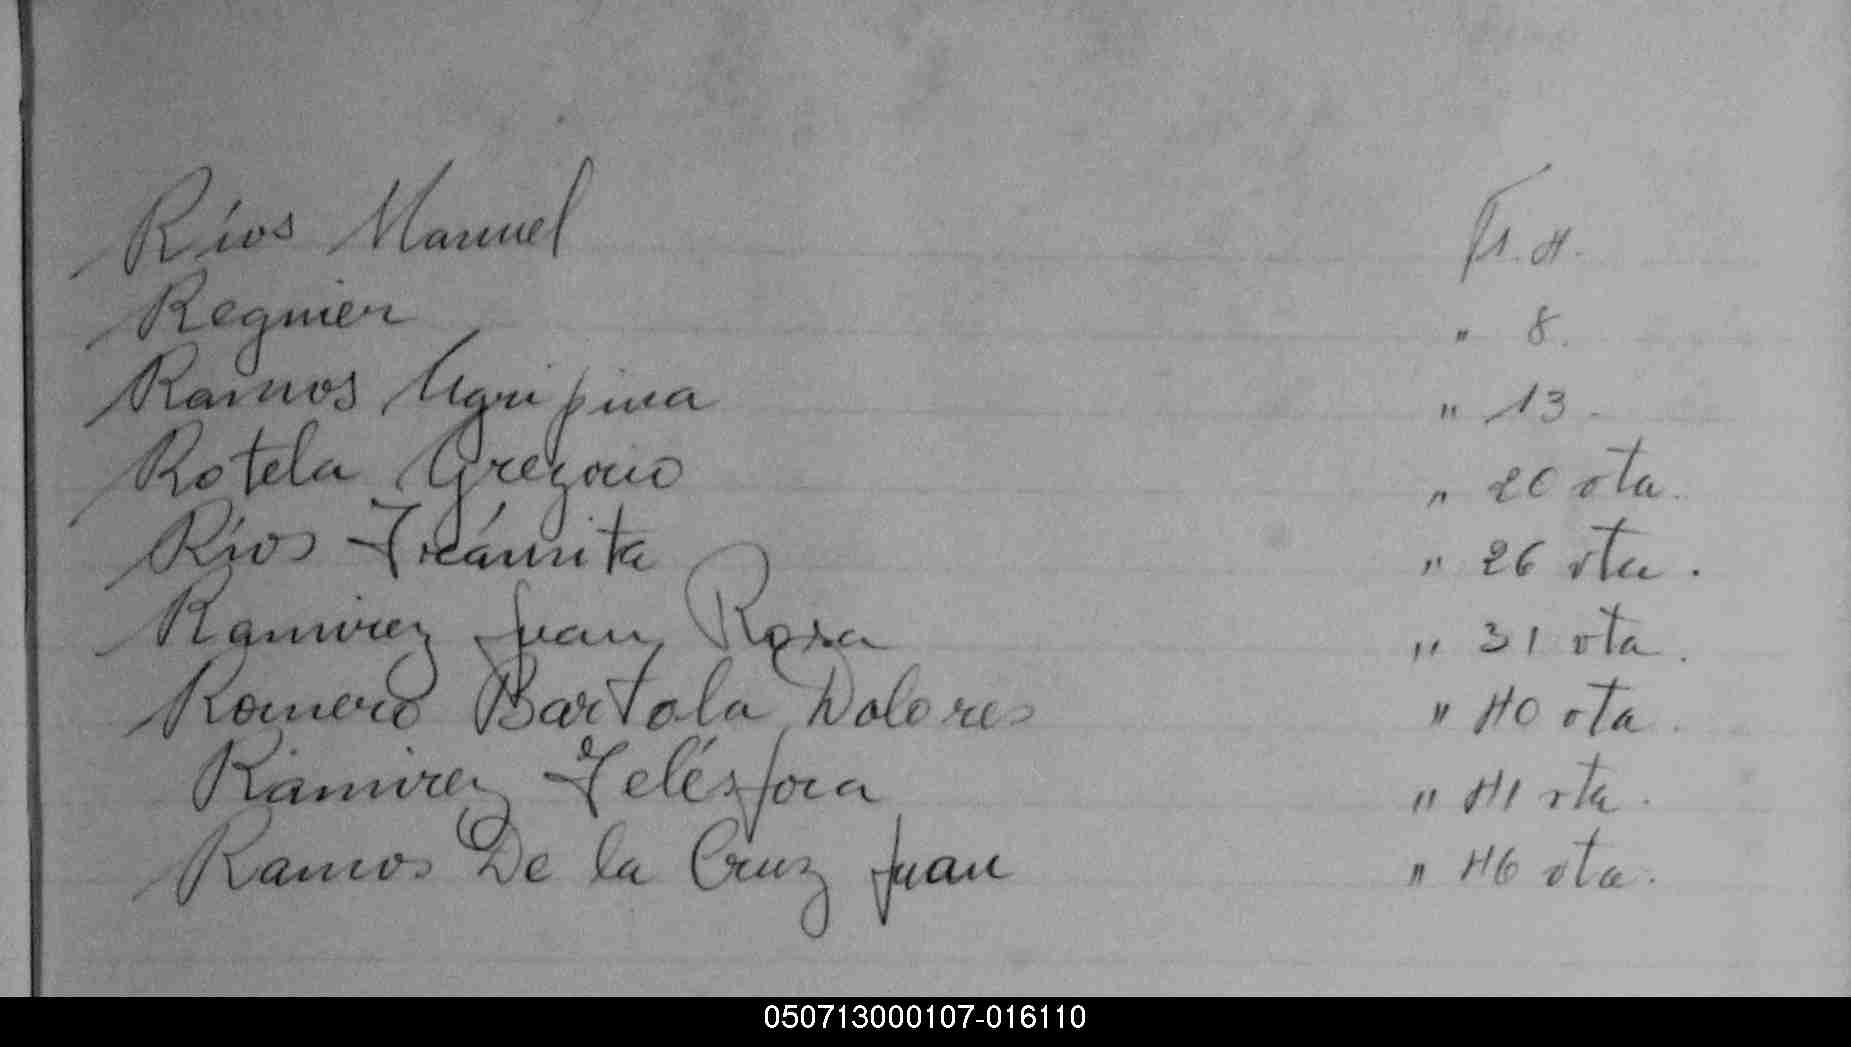 Ríos Manuel Fs. 4.
Regnier " 8.
Ramos Agripina " 13.
Rotela Gregorio " 20 vta.
Ríos Tránsita " 26 vta.
Ramirez Juan Rosa " 31 vta.
Romero Bartola Dolores " 40 vta.
Ramirez Telésfora " 41 vta.
Ramos De la Cruz Juan " 46 vta.
050713000107-016110